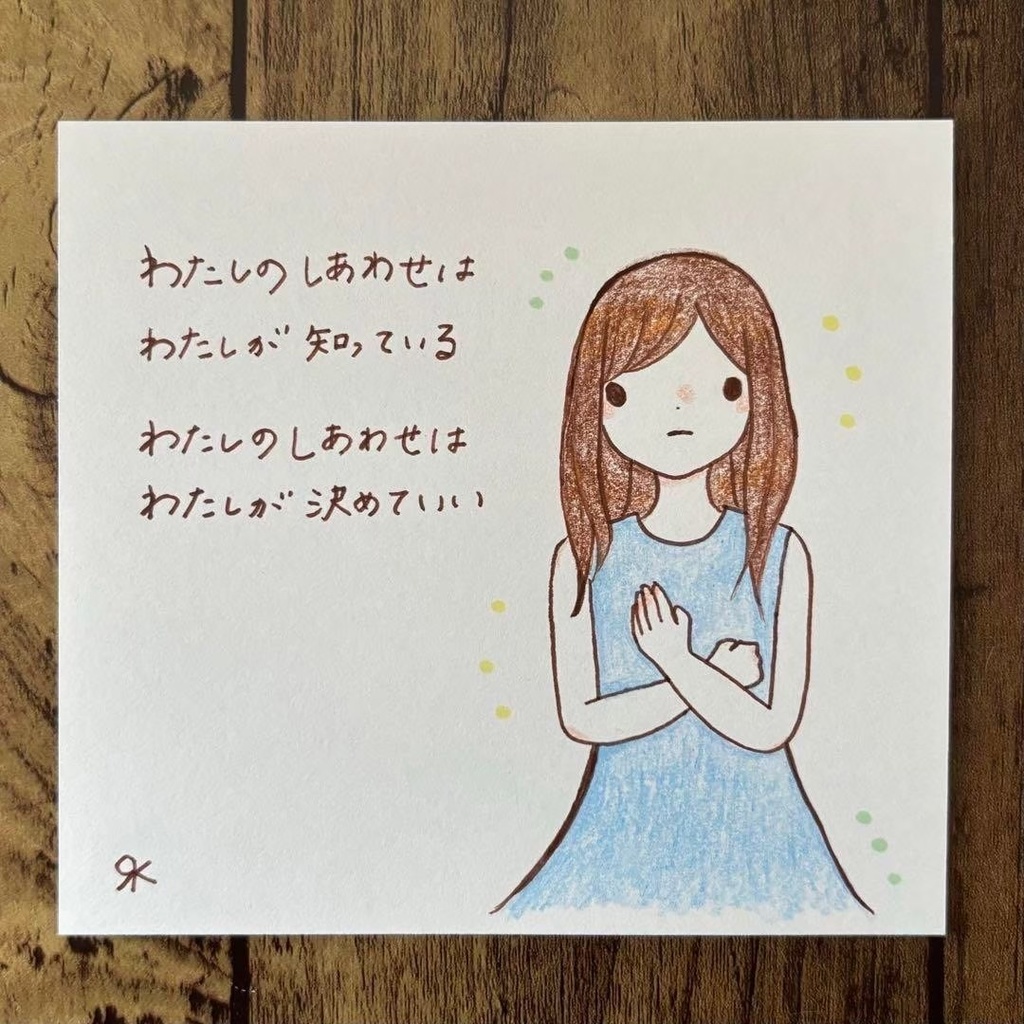 わたしの しあわせは
わたしが 知っている
わたしの しあわせは
わたしが 決めていい